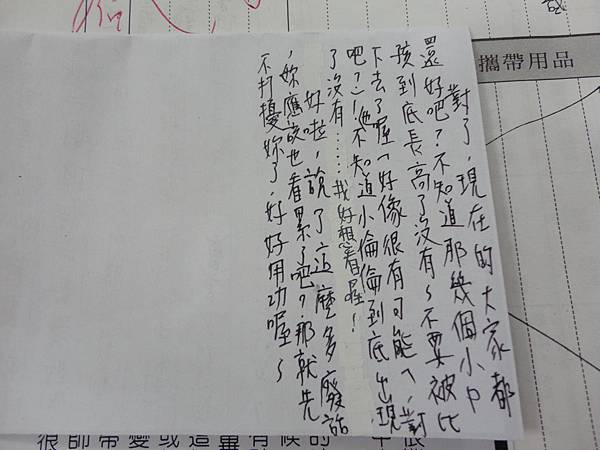 對了，現在的大家都
還好吧？不知道那幾個小
孩到底長高了沒有~不要被比
下去了喔（好像很有可能ㄟ，對
吧？）！也不知道小倫倫到底出現
了沒有……我好想看喔！
好啦，說了這麼多廢話
，妳應該也看累了吧？那就先
不打擾妳了，好好用功喔~
攜帶用品